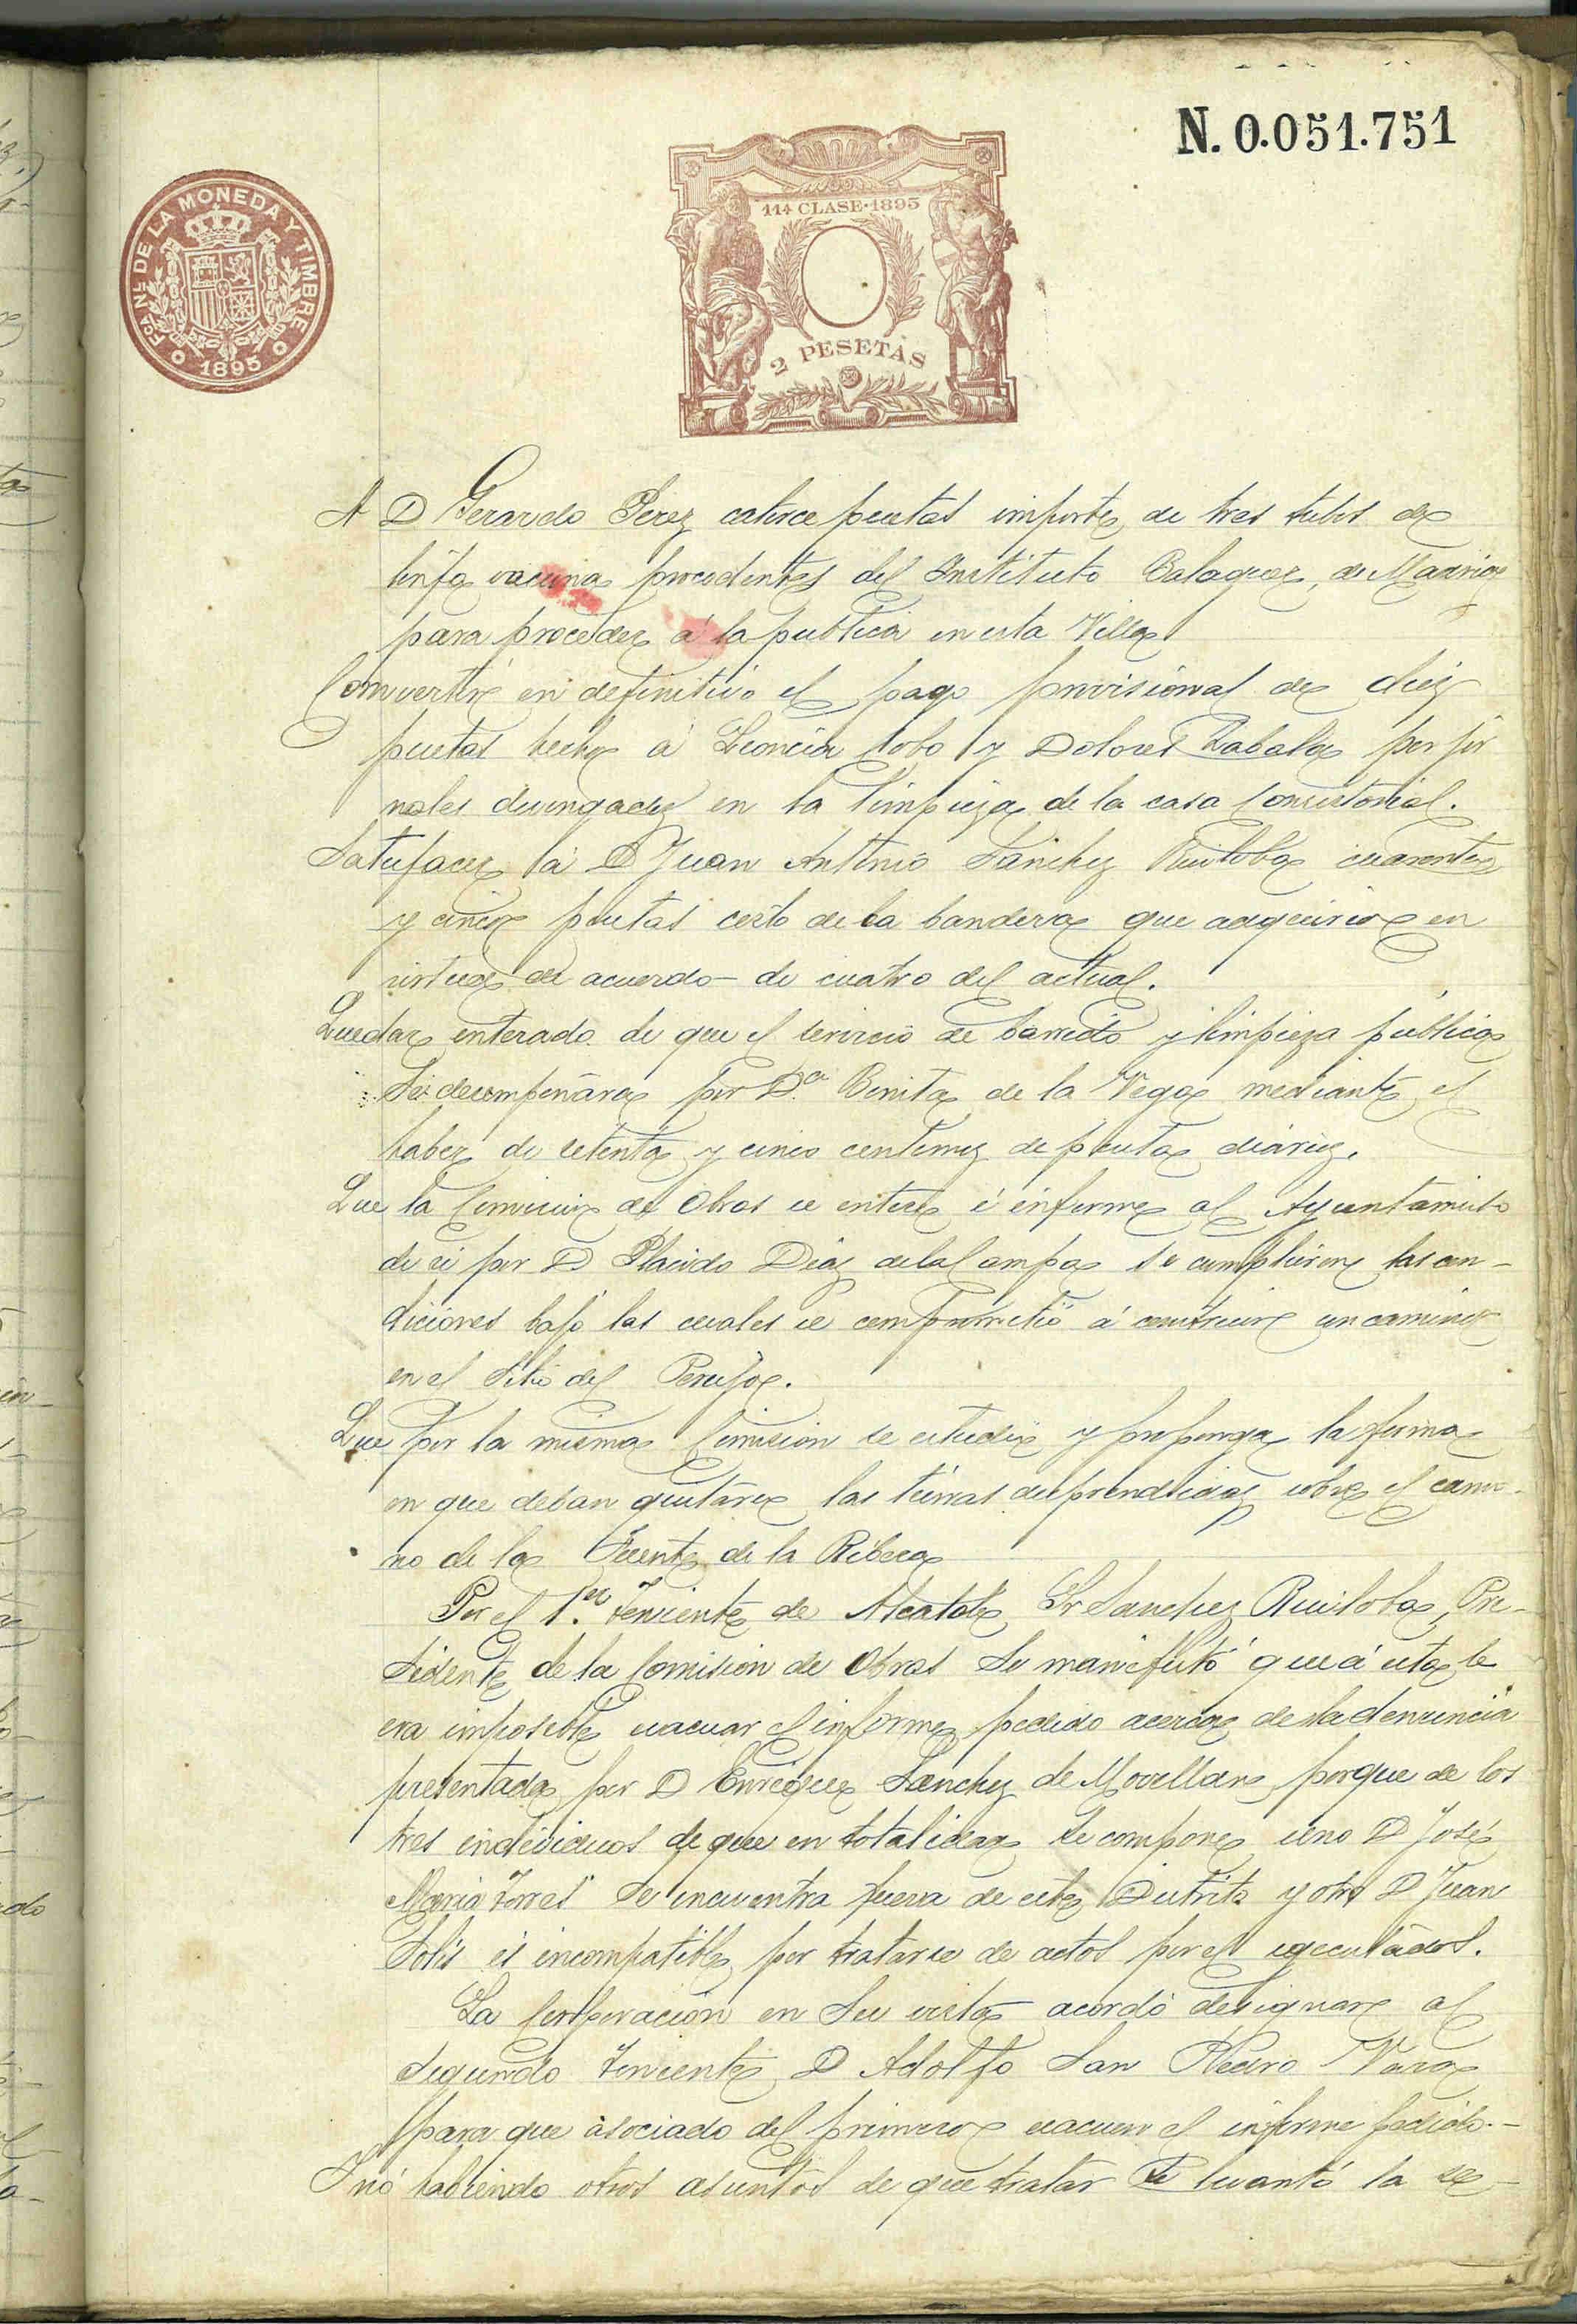 N. 0.051.751
FCA. NL. DE LA MONEDA Y TIMBRE
1895
11ª CLASE·1895
2 PESETAS
A D Gerardo Perez catorce pesetas importe de tres tubos de
linfa vacuna procedentes del Instituto Balaguer, de
para proceder á la publica en esta Villa
Convertir en definitivo el pago provisional de diez
pesetas hecho á Leoncia Cobo y Dolores Zabala por jor
nales devengados en la limpieza de la casa Consistorial.
Satisfacer á D Juan Antonio Sanchez Ruiloba cuarenta
y cinco pesetas costo de la bandera que adquirio en
virtud de acuerdo de cuatro del actual.
Quedar enterado de que el servicio de barrido y limpieza publica
se desempeñara por Dª Benita de la Vega mediante el
haber de setenta y cinco centimos de peseta diarios.
Que la Comision de Obras se entere é informe al Ayuntamiento
de si por D Placido Diaz de la Campa se cumplieron las con-
diciones bajo las cuales se comprometió á construir un camino
en el Sitio del
Que por la misma Comision se estudie y proponga la forma
en que deban quitarse las tierras desprendidas sobre el cami-
no de la Fuente de la Ribera
Por el 1.er Teniente de Alcalde Sr Sanchez Ruiloba, Pre-
sidente de la Comision de Obras se manifestó que á esta le
era imposible evacuar el informe pedido acerca de la denuncia
presentada por D Enrique Sanchez de Movellan porque de los
tres individuos de que en totalidad se compone uno D José
Maria Torres se encuentra fuera de este Distrito y otro D Juan
Solis es incompatible por tratarse de actos por el egecutados.
La Corporación en su vista acordó designar al
segundo Teniente D Adolfo San Pedro Vara
para que asociado del primero evacuen el informe pedido.-
I no habiendo otros asuntos de que tratar se levantó la se-